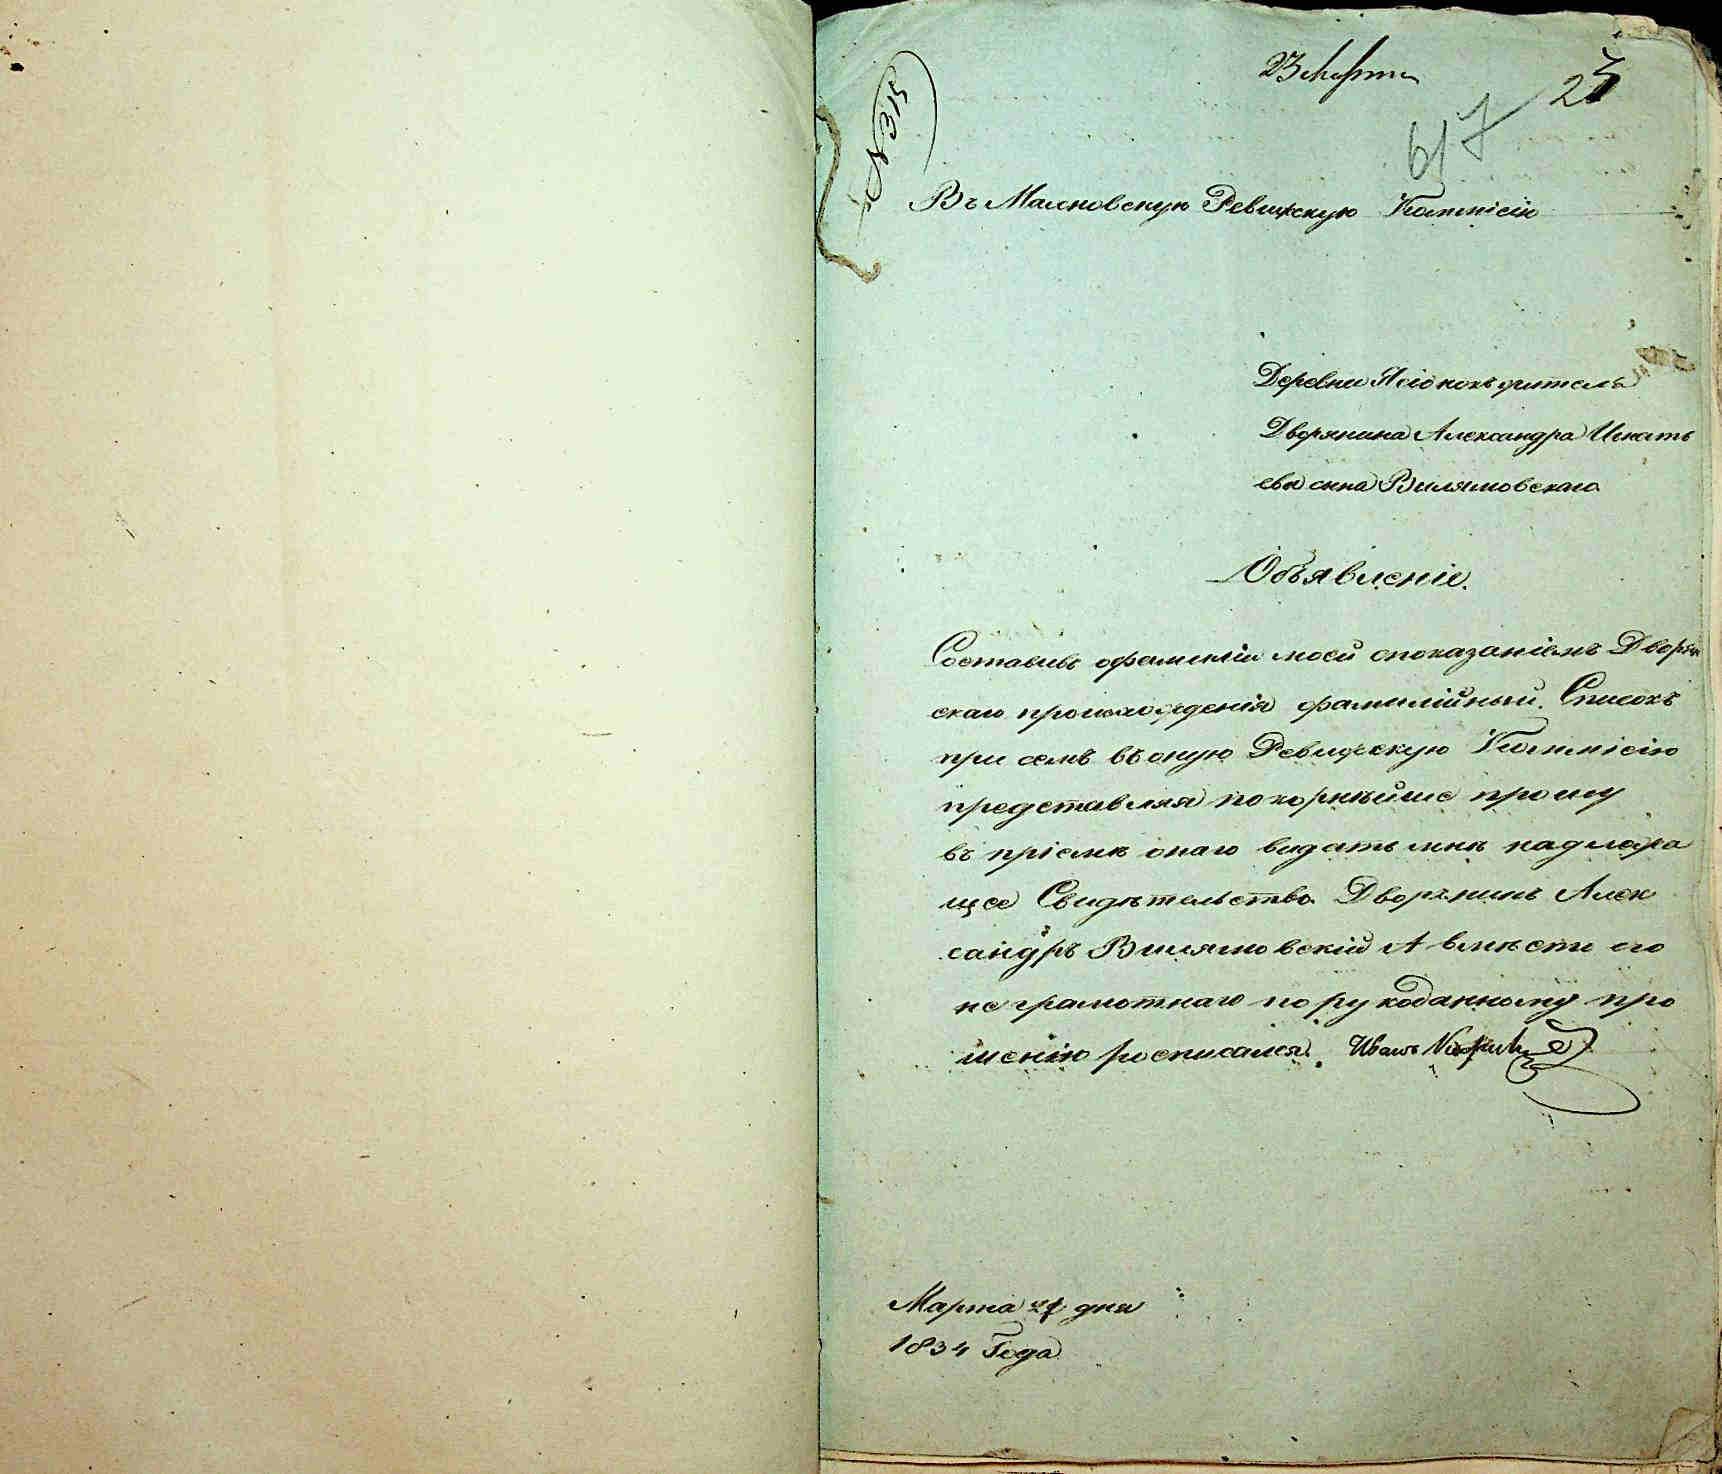 23 Марта
23
617
№ 315
Въ Ревизскую Коммисію
Деревни жителя
Дворянина Александра Игнать
ева сина Вилямовскаго
Объявленіе.
Составивъ офамиліи моей споказаніемъ Дворян
скаго происхожденія фамилійный Списокъ
при семъ въ оную Ревизскую Коммисію
представляя покорнѣйше прошу
въ пріемѣ онаго видать мнѣ надлежа
щее Свидѣтельство Дворянинъ Алек
сандръ Вилямовскій А вмѣсто его
не грамотнаго по рукоданному про
шенію росписался Иванъ
Марта дня
1834 Года